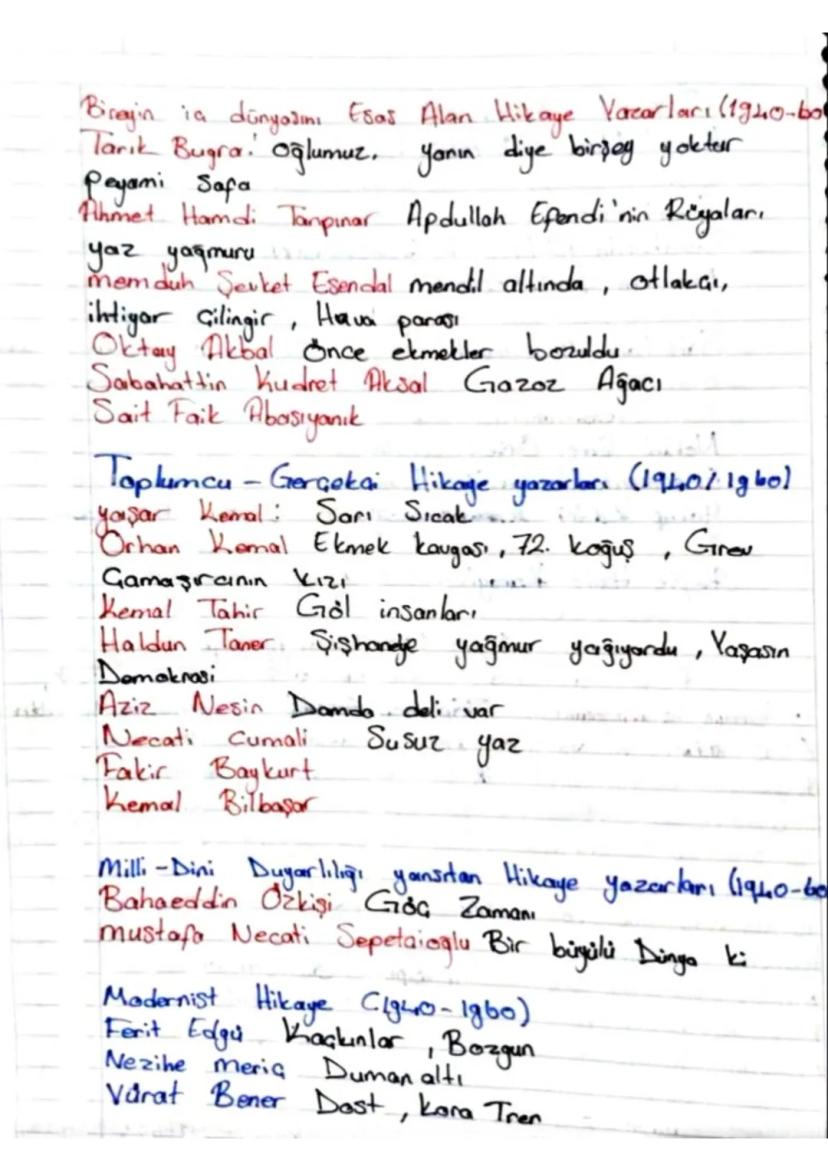 Bireyin iç dünyasını Esas Alan Hikaye Yazarları (1940-60
Tarık Bugra: Oğlumuz, yarın diye birşey yoktur
Peyami Safa
Ahmet Hamdi Tanpınar Apdullah Efendi'nin Rüyaları
yaz yağmuru
memduh Şevket Esendal mendil altında, otlakçı,
ihtiyar çilingir, Hava parası
Oktay Akbal Önce ekmekler bozuldu
Sabahattin Kudret Aksal Gazoz Ağacı
Sait Faik Abasıyanık
Toplumcu - Gerçekçi Hikaye yazarları (1940/1960)
yaşar Kemal: Sarı Sıcak
Orhan Kemal Ekmek kavgası, 72. koğuş, Grev
Çamaşırcının kızı
Kemal Tahir Göl insanları
Haldun Taner Şişhaneye yağmur yağıyordu, Yaşasın
Demokrasi
Aziz Nesin Damda deli var
Necati Cumali Susuz yaz
Fakir Baykurt
Kemal Bilbaşar
Milli-Dini Duyarlılığı yansıtan Hikaye yazarları (1940-60
Bahaeddin Özkişi Göç Zamanı
mustafa Necati Sepetçioglu Bir büyülü Dünya ki
Modernist Hikaye (1940-1960)
Ferit Edgü Kaçkınlar, Bozgun
Nezihe meriç Dumanaltı
Vürat Bener Dost, kara Tren